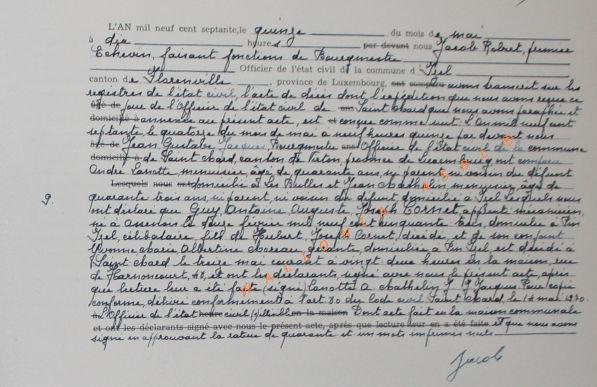 L'AN mil neuf cent septante, le quinze du mois de mai
à dix heures par devant nous Jacob Robert, premier
Echevin, faisant fonctions de Bourgmestre
Officier de l'état civil de la commune d'Izel
canton de Florenville, province de Luxembourg, ont comparu avons transcrit sur les
registres de l'état civil, l'acte de décès dont l'expédition que nous avons reçue ce
âgé de jour de l'Officier de l'état civil de Saint Mard que nous avons paraphée et
domicilié à annexée au présent acte, est et conçue comme suit. L'an mil neuf cent
septante, le quatorze du mois de mai à neuf heures quinze par devant nous
âgé de Jean Gustave Jacques, Bourgmestre Officier de l'état civil de la commune
domicilié à de Saint Mard, canton de Virton, province de Luxembourg ont comparu
André Lanotte, menuisier, âgé de quarante ans, ni parent, ni voisin du défunt
Lesquels nous ont domicilié à Les Bulles et Jean Mathelin, menuisier, âgé de
quarante trois ans, ni parent, ni voisin du défunt domicilié à Izel lesquels nous
ont déclaré que Guy, Antoine, Auguste, Joseph Cornet, apprenti mécanicien,
né à le douze février mil neuf cent cinquante domicilié à Pin
Izel, célibataire, fils de Hubert, Joseph Cornet, décédé et de son conjoint
Yvonne, Maria, Albertine domiciliée à Pin Izel est décédé à
Saint Mard le treize mai courant à vingt deux heures en la maison, rue
de Harnoncourt, 48, et ont les déclarants, signé avec nous le présent acte, après
que lecture leur a été faite (signé) Lanotte A Mathelin J. J G Jacques Pour copie
conforme, délivré conformément à l'art 80 du code civil Saint Mard, le 14 mai 1970.
L'Officier de l'état civil (s) en la maison Dont acte fait en la maison communale
et ont les déclarants signé avec nous le présent acte, après que lecture leur en a été faite et que nous avons
signé en approuvant la rature de quarante et un mots imprimés nuls
9.
Jacob